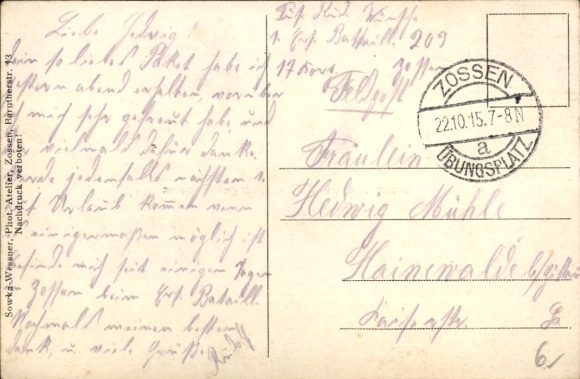 Liebe Hedwig!
Dein so liebes Paket habe ich
gestern abend erhalten, worüber
ich mich sehr gefreut habe, und
vielmals dafür danke.
Werde jedenfalls nächsten
Urlaub kommen wenn
einigermaßen möglich ist
Befinde mich seit einigen Tagen
Zossen beim Ers. Bataill.
Nochmals meinen besten
Dank, u. viele Grüße
Rudolf
Sowka-Wessner, Phot. Atelier, Zossen, Barutherstr. 13
Nachdruck verboten!
Rud.
1. Ers. Bataill. 203
17 Korp. Zossen
Feldpost
ZOSSEN
22.10.15.7-8N
a
ÜBUNGSPLATZ
Fräulein
Hedwig Mühle
Hainewalde
Sa
6